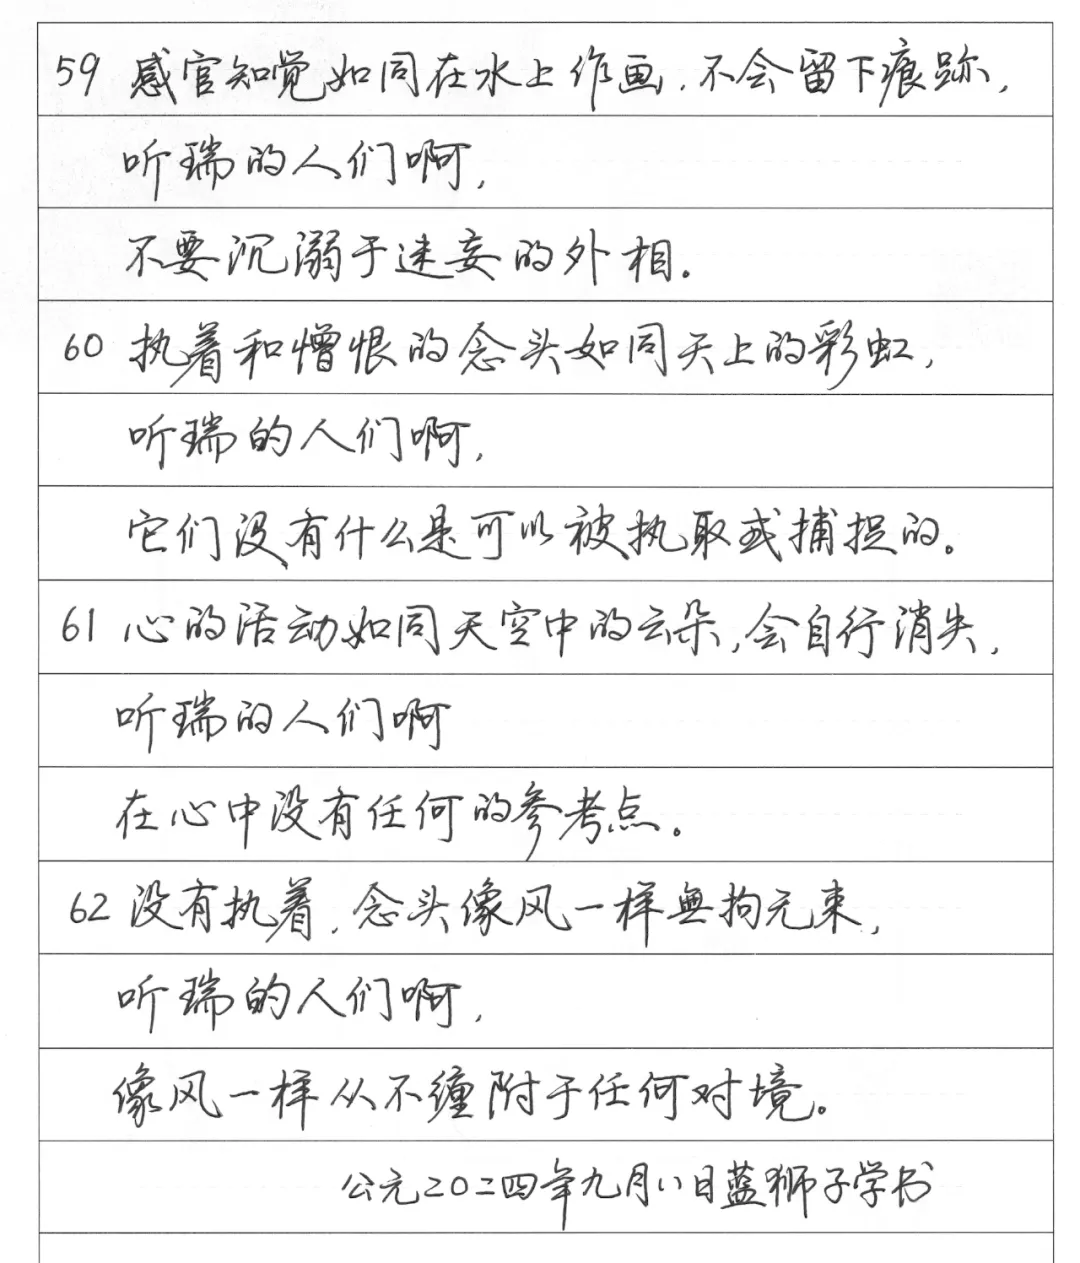 59 感官知觉如同在水上作画,不会留下痕跡,
听瑞的人们啊,
不要沉溺于迷妄的外相。
60 执着和憎恨的念头如同天上的彩虹,
听瑞的人们啊,
它们没有什么是可以被执取或捕捉的。
61 心的活动如同天空中的云朵,会自行消失,
听瑞的人们啊
在心中没有任何的参考点。
62 没有执着,念头像风一样無拘无束,
听瑞的人们啊,
像风一样从不缠附于任何对境。
公元二〇二四年九月八日蓝狮子学书